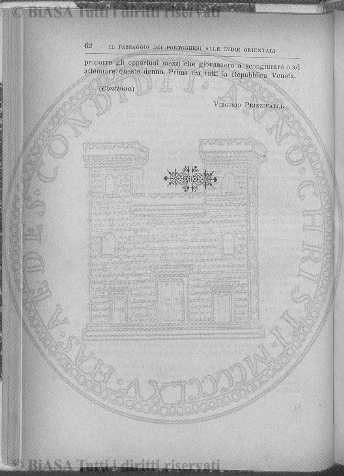 © BIASA Tutti i diritti riservati
62 IL PASSAGGIO DEI PORTOGHESI ALLE INDIE ORIENTALI
proporre gli opportuni mezzi che giovassero a scongiurare o ad
attenuare questo danno. Prima fra tutti la Repubblica Veneta.
(Continua)
VIRGINIO PRINZIVALLI.
HAS AEDES CONDIDIT ANNO CHRISTI MCCCCLXV
© BIASA Tutti i diritti riservati